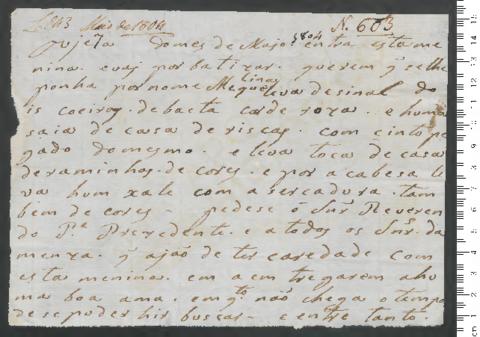 L. 843 Maio de 1804 N. 603
Ouje 12 Domes de Majo 1804 entra esta me
nina. e vaj por batizar. querem q̃ se lhe
ponha por nome Mequelina leva de sinal do
is coeiros. de baeta cor de roza. e huma
saia de casa de riscas. com cinto pe
gado do mesmo. e leva toca de casa
de raminhos. de cores. e por a cabesa le
va hum xale com a sercadura. tam
bem de cores - pedese ó Snr̃ Reveren
do P.e Prezedente. e a todos os Snr̃. da
menza. q̃ ajaõ de ter caredade com
esta menina. em a em tregarem a hu
ma boa ama. em q.to naõ chega o tempo
de se poder hir buscar - e entre tanto.